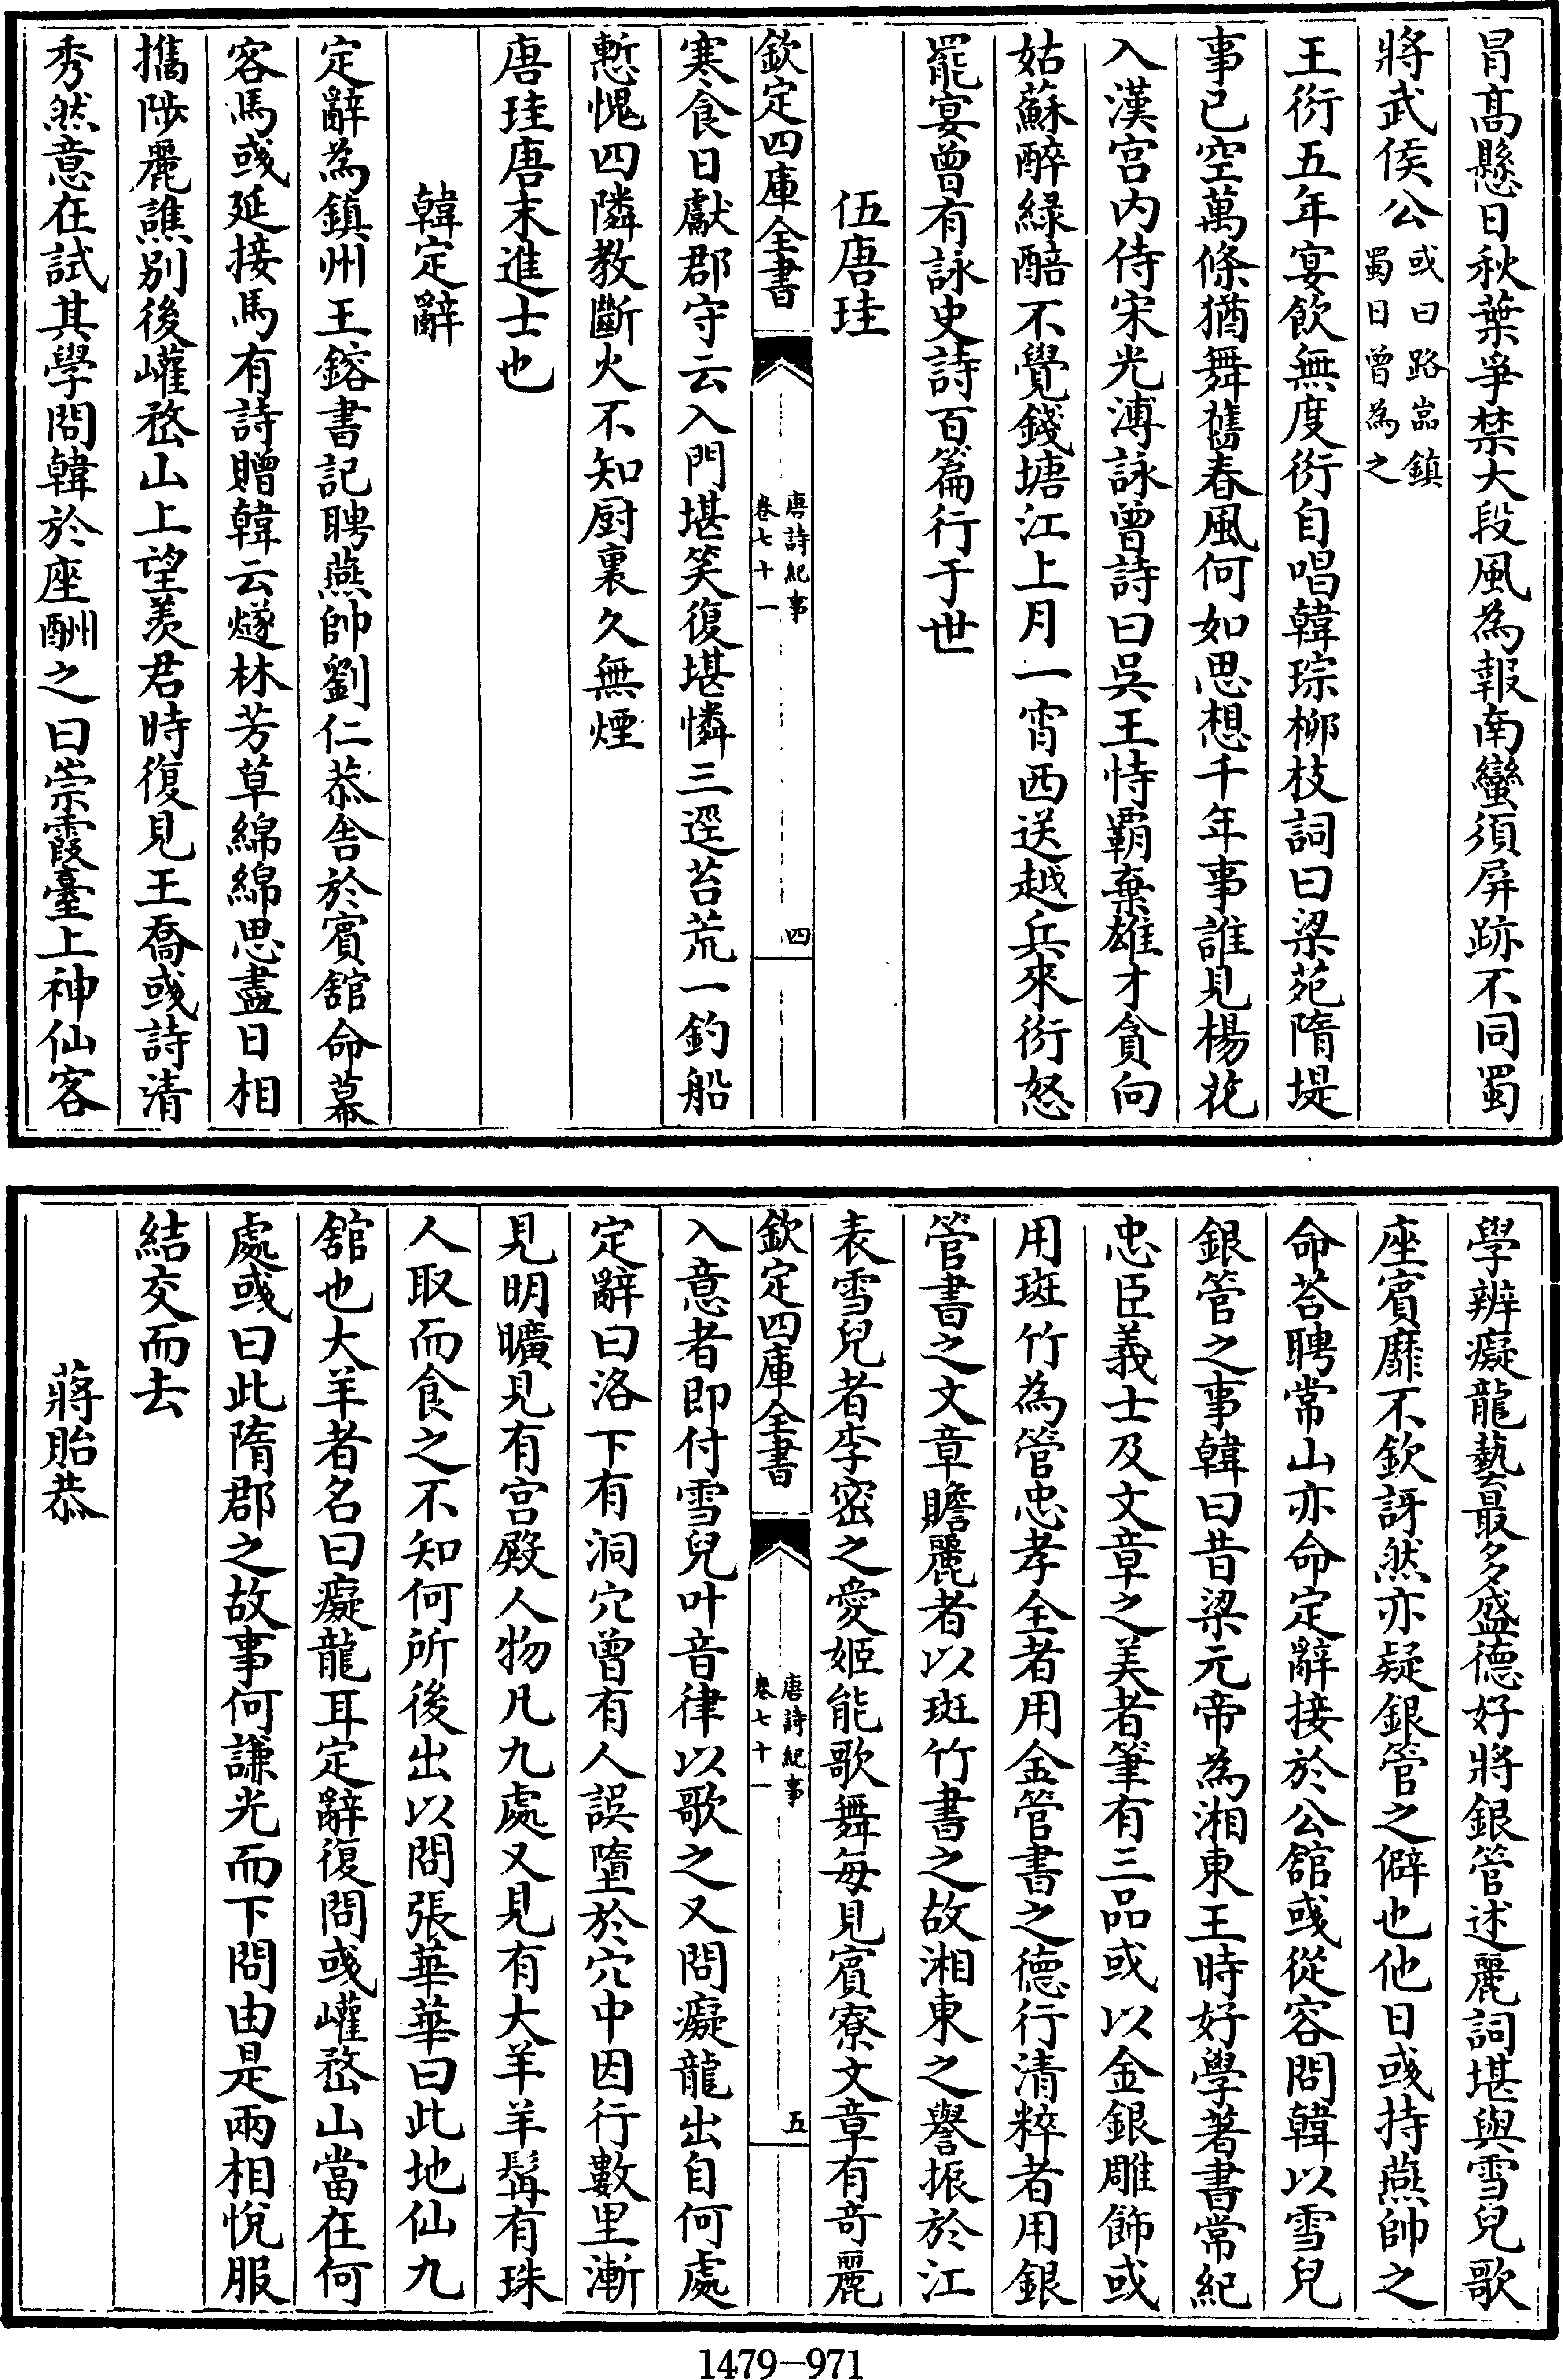 冐髙懸日秋葉爭禁大段風為報南蠻須屏跡不同蜀
將武侯公或曰路嵓鎮蜀日曾為之
王衍五年宴飲無度衍自唱韓琮柳枝詞曰梁苑隋堤
事已空萬條猶舞舊春風何如思想千年事誰見楊花
入漢宫内侍宋光溥詠曾詩曰吳王恃霸棄雄才貪向
姑蘇醉緑醅不覺錢塘江上月一宵西送越兵來衍怒
罷宴曾有詠史詩百篇行于世
伍唐珪
欽定四庫全書
唐詩紀事
卷七十一
四
寒食日獻郡守云入門堪笑復堪憐三逕苔荒一釣船
慙愧四隣教斷火不知厨裏久無煙
唐珪唐末進士也
韓定辭
定辭為鎮州王鎔書記聘燕帥劉仁恭舍於賓舘命幕
客馬彧延接馬有詩贈韓云燧林芳草綿綿思盡日相
擕陟麗譙别後巏嵍山上望羡君時復見王喬彧詩清
秀然意在試其學問韓於座酬之曰崇霞臺上神仙客
學辨癡龍藝最多盛德好將銀管述麗詞堪與雪兒歌
座賓靡不欽訝然亦疑銀管之僻也他日彧持燕帥之
命荅聘常山亦命定辭接於公舘彧從容問韓以雪兒
銀管之事韓曰昔梁元帝為湘東王時好學著書常紀
忠臣義士及文章之美者筆有三品或以金銀雕飾或
用斑竹為管忠孝全者用金管書之德行清粹者用銀
管書之文章贍麗者以斑竹書之故湘東之譽振於江
表雪兒者李密之愛姬能歌舞每見賓寮文章有竒麗
欽定四庫全書
唐詩紀事
卷七十一
五
入意者即付雪兒叶音律以歌之又問癡龍出自何處
定辭曰洛下有洞穴曾有人誤墮於穴中因行數里漸
見明曠見有宫殿人物凡九處又見有大羊羊髯有珠
人取而食之不知何所後出以問張華華曰此地仙九
舘也大羊者名曰癡龍耳定辭復問彧巏嵍山當在何
處彧曰此隋郡之故事何謙光而下問由是兩相悅服
結交而去
蔣貽恭
1479-971